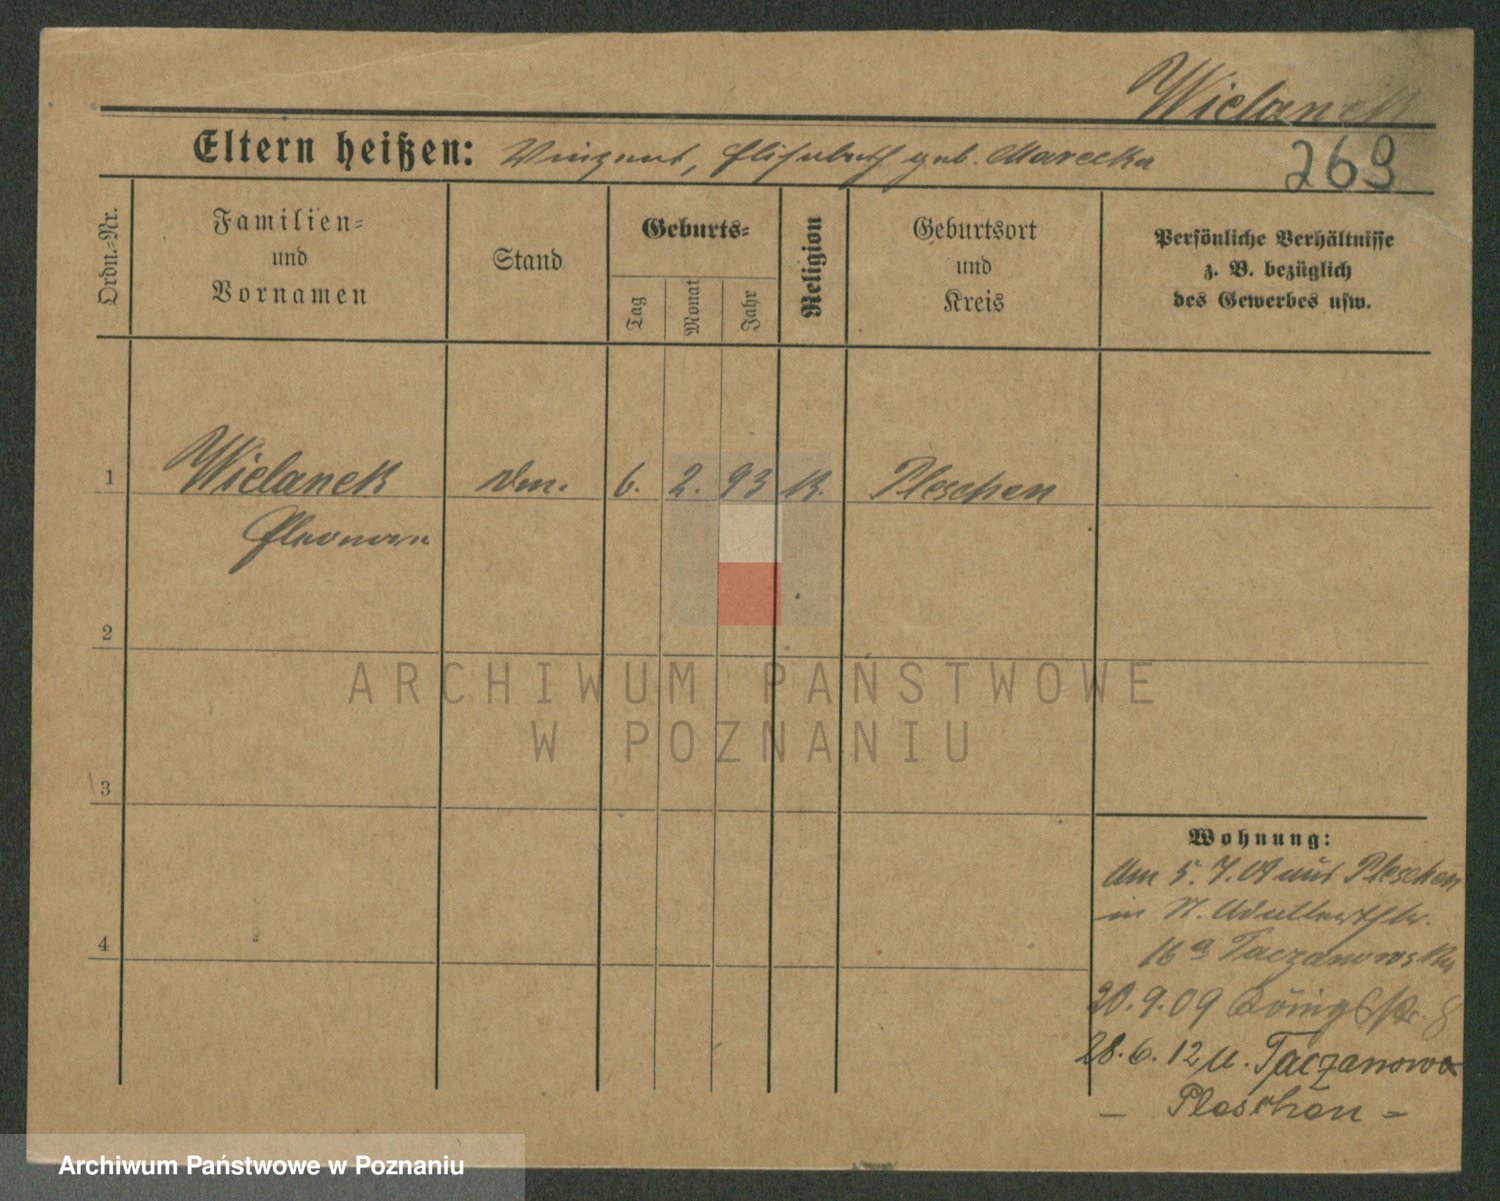 Wielanek
Eltern heißen: Vinzent, Elisabeth geb. Marecka
269
Ordn.=Nr.
Familien=
und
Vornamen
Stand
Geburts=
Tag
Monat
Jahr
Religion
Geburtsort
und
Kreis
Persönliche Verhältnisse
z. B. bezüglich
des Gewerbes usw.
1 Wielanek 6. 2. 93 K. Pleschen
Eleonora
2
ARCHIWUM PAŃSTWOWE
W POZNANIU
3
Wohnung:
Am 5.7.09 aus Pleschen
in St. Adalbertstr.
4
16a Taczanowska
20.9.09 Königstr. 8
28.6.12 u. Taczanowo
– Pleschen –
Archiwum Państwowe w Poznaniu